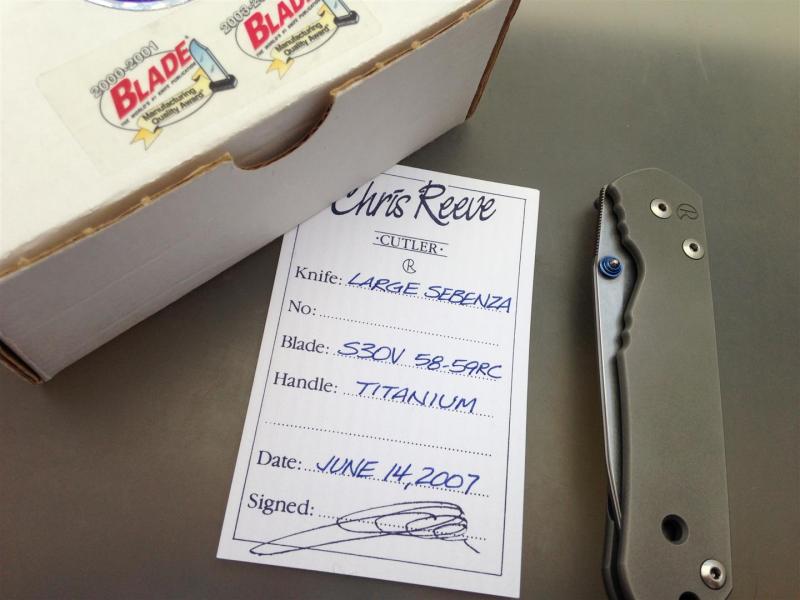 2000-2001
BLADE
THE WORLD'S #1 KNIFE PUBLICATION
Manufacturing
Quality Award
2003-2
BLADE
Manufacturing
Quality Award
Chris Reeve
·CUTLER·
R
Knife: LARGE SEBENZA
No:
Blade: S30V 58-59RC
Handle: TITANIUM
Date: JUNE 14, 2007
Signed:
R